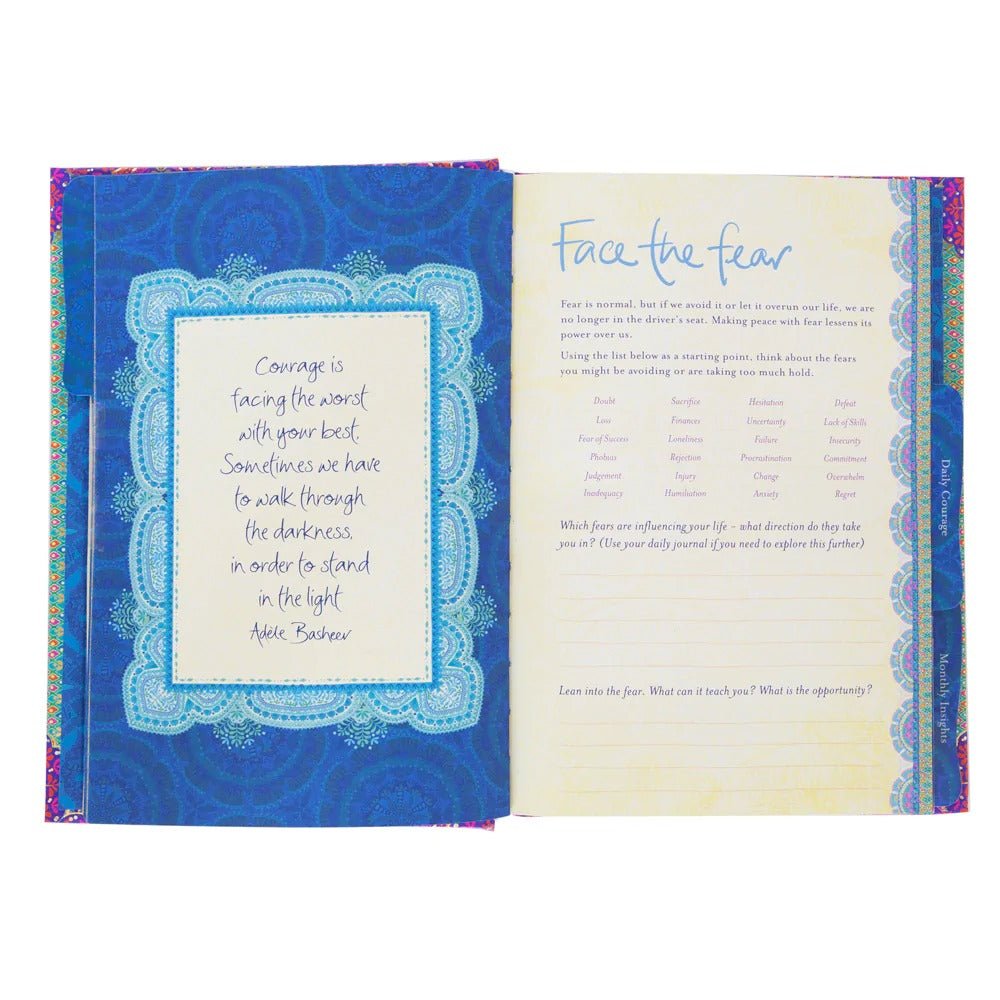 Courage is
facing the worst
with your best.
Sometimes we have
to walk through
the darkness,
in order to stand
in the light
Adèle Basheer
Face the fear
Fear is normal, but if we avoid it or let it overun our life, we are
no longer in the driver's seat. Making peace with fear lessens its
power over us.
Using the list below as a starting point, think about the fears
you might be avoiding or are taking too much hold.
Doubt Sacrifice Hesitation Defeat
Loss Finances Uncertainty Lack of Skills
Fear of Success Loneliness Failure Insecurity
Phobias Rejection Procrastination Commitment
Judgement Injury Change Overwhelm
Inadequacy Humiliation Anxiety Regret
Which fears are influencing your life – what direction do they take
you in? (Use your daily journal if you need to explore this further)
Lean into the fear. What can it teach you? What is the opportunity?
Daily Courage
Monthly Insights